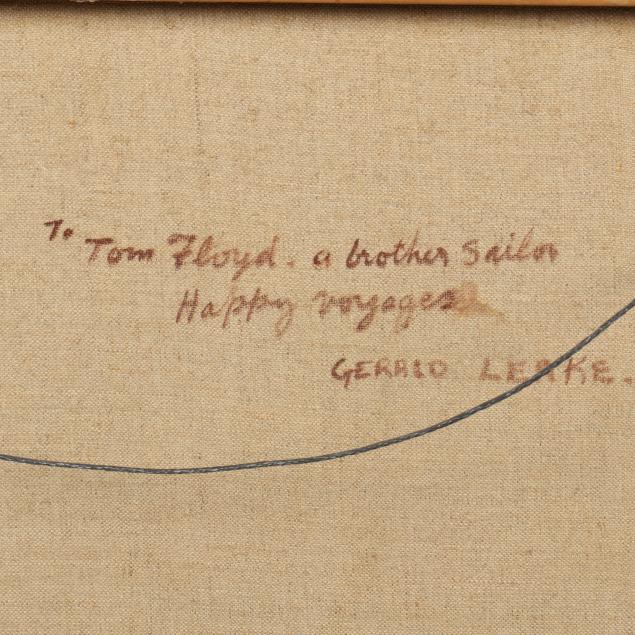 To Tom Floyd. a brother sailor
Happy voyages
GERALD LEAKE.